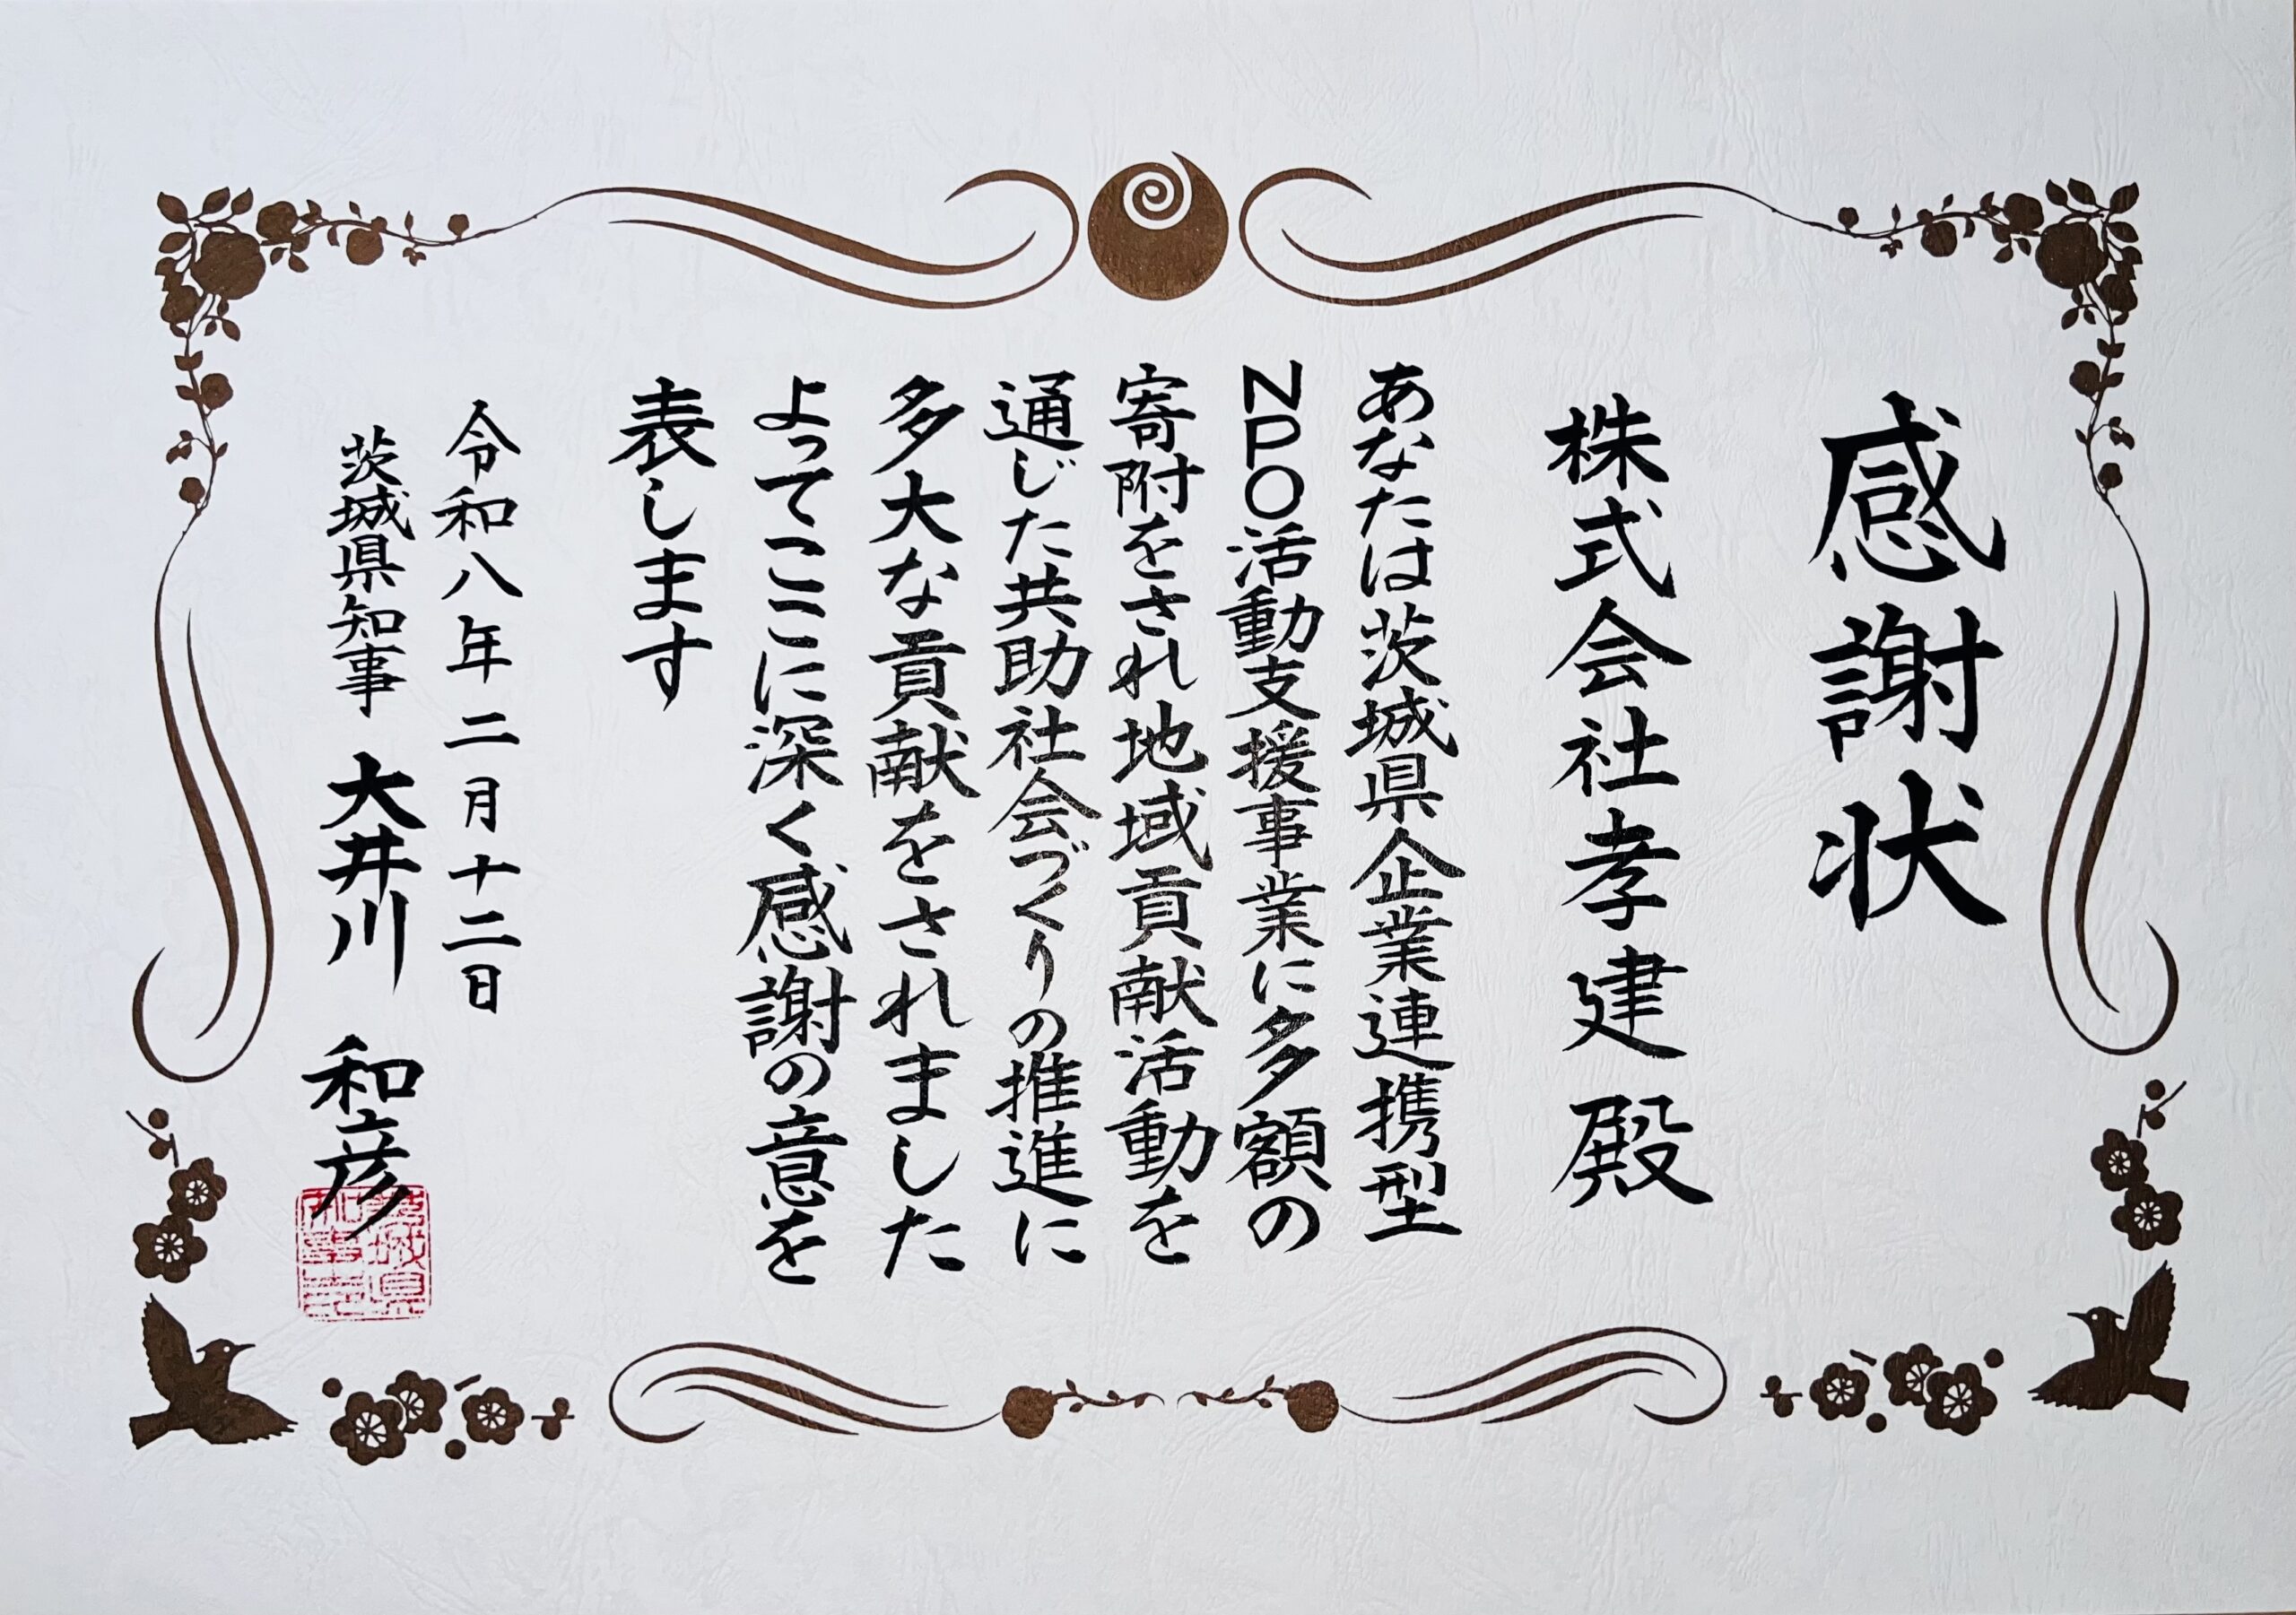 感謝状
株式会社孝建殿
あなたは茨城県企業連携型
NPO活動支援事業に多額の
寄附をされ地域貢献活動を
通じた共助社会づくりの推進に
多大な貢献をされました
よってここに深く感謝の意を
表します
令和八年二月十二日
茨城県知事 大井川 和彦